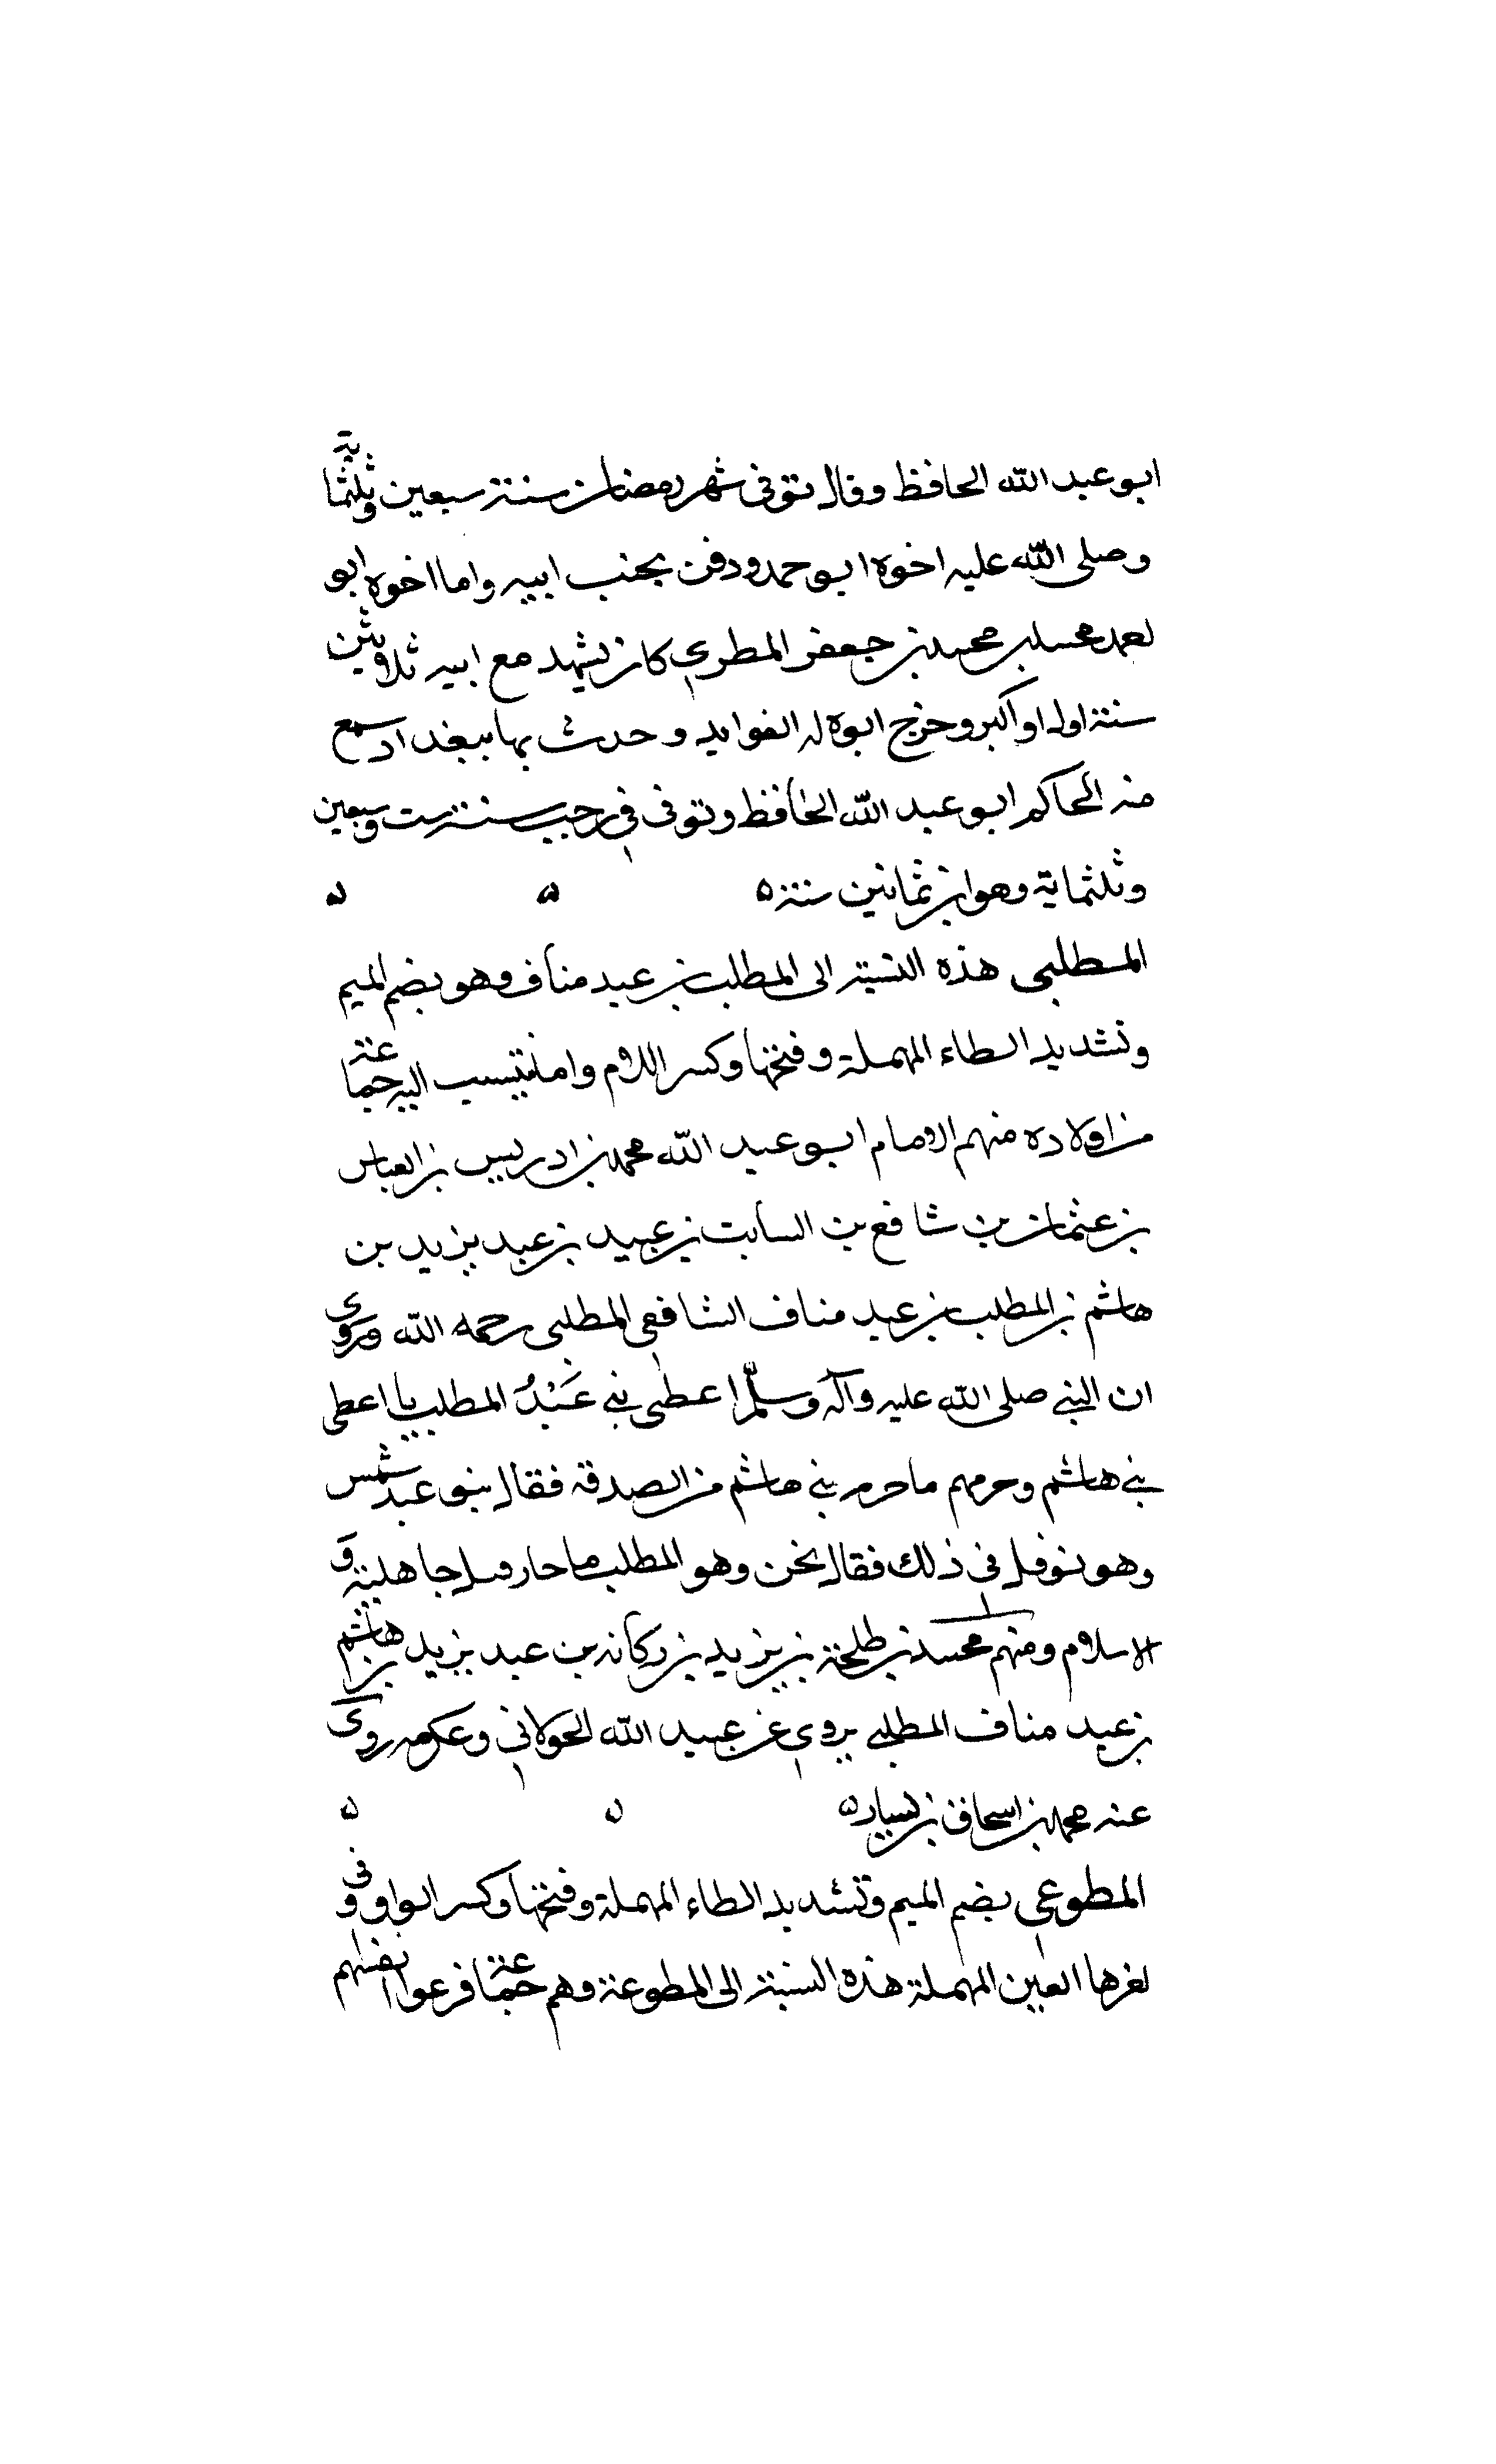 ابو عبد الله الحافظ وقال توفى شهر رمضان سنة سبعين وثلثماية
وصلى الله عليه اخوه ابو حمد ودفن بجنب ابيه واما اخوه ابو
محمد بن محمد بن جعفر المطرى كان يشهد مع ابيه ثلاثين
سنة اول او اكبر وخرج ابوه له الفوايد وحدث بها ببغداد سمع
منه الحاكم ابو عبد الله الحافظ وتوفى فى رجب سنة ست وسبعين
وثلثماية وهو ابن ثمانين سنة ه ه ه
المطلبى هذه النسبة الى المطلب بن عبد مناف وهو بضم الميم
وتشديد الطاء المهملة وفتحها وكسر اللام وامانتسب اليه جماعة
من اولاده منهم الامام ابو عبد الله محمد بن ادريس بن العباس
بن عثمان بن شافع بن السابت بن عبيد بن عبد يزيد بن
هاشم بن المطلب بن عبد مناف الشافعى المطلبى رحمه الله وروى
ان النبى صلى الله عليه وآله وسلم اعطى بنى عَبْدُ المطلب يا اعطى
بنى هاشم وحرمهم ما حرم بنى هاشم من الصدقه فقال بنو عبد شمس
وهو نوفل فى ذلك فقال نحن وهو المطلب ما جاهلية و
الاسلام ومنهم محمد بن طلحة بن يزيد بن ركانه بن عبد يزيد بن هاشم
بن عبد مناف المطلبى يروى عن عبيد الله الخولانى وعكرمه روى
عنه محمد بن اسحاق بن يسار ه ه ه
المطوعى بضم الميم وتشديد الطاء المهملة وفتحها وكسر الواو وفى
اخرها العين المهملة هذه النسبة الى المطوعة وهم جماعة فرعوا انفسهم